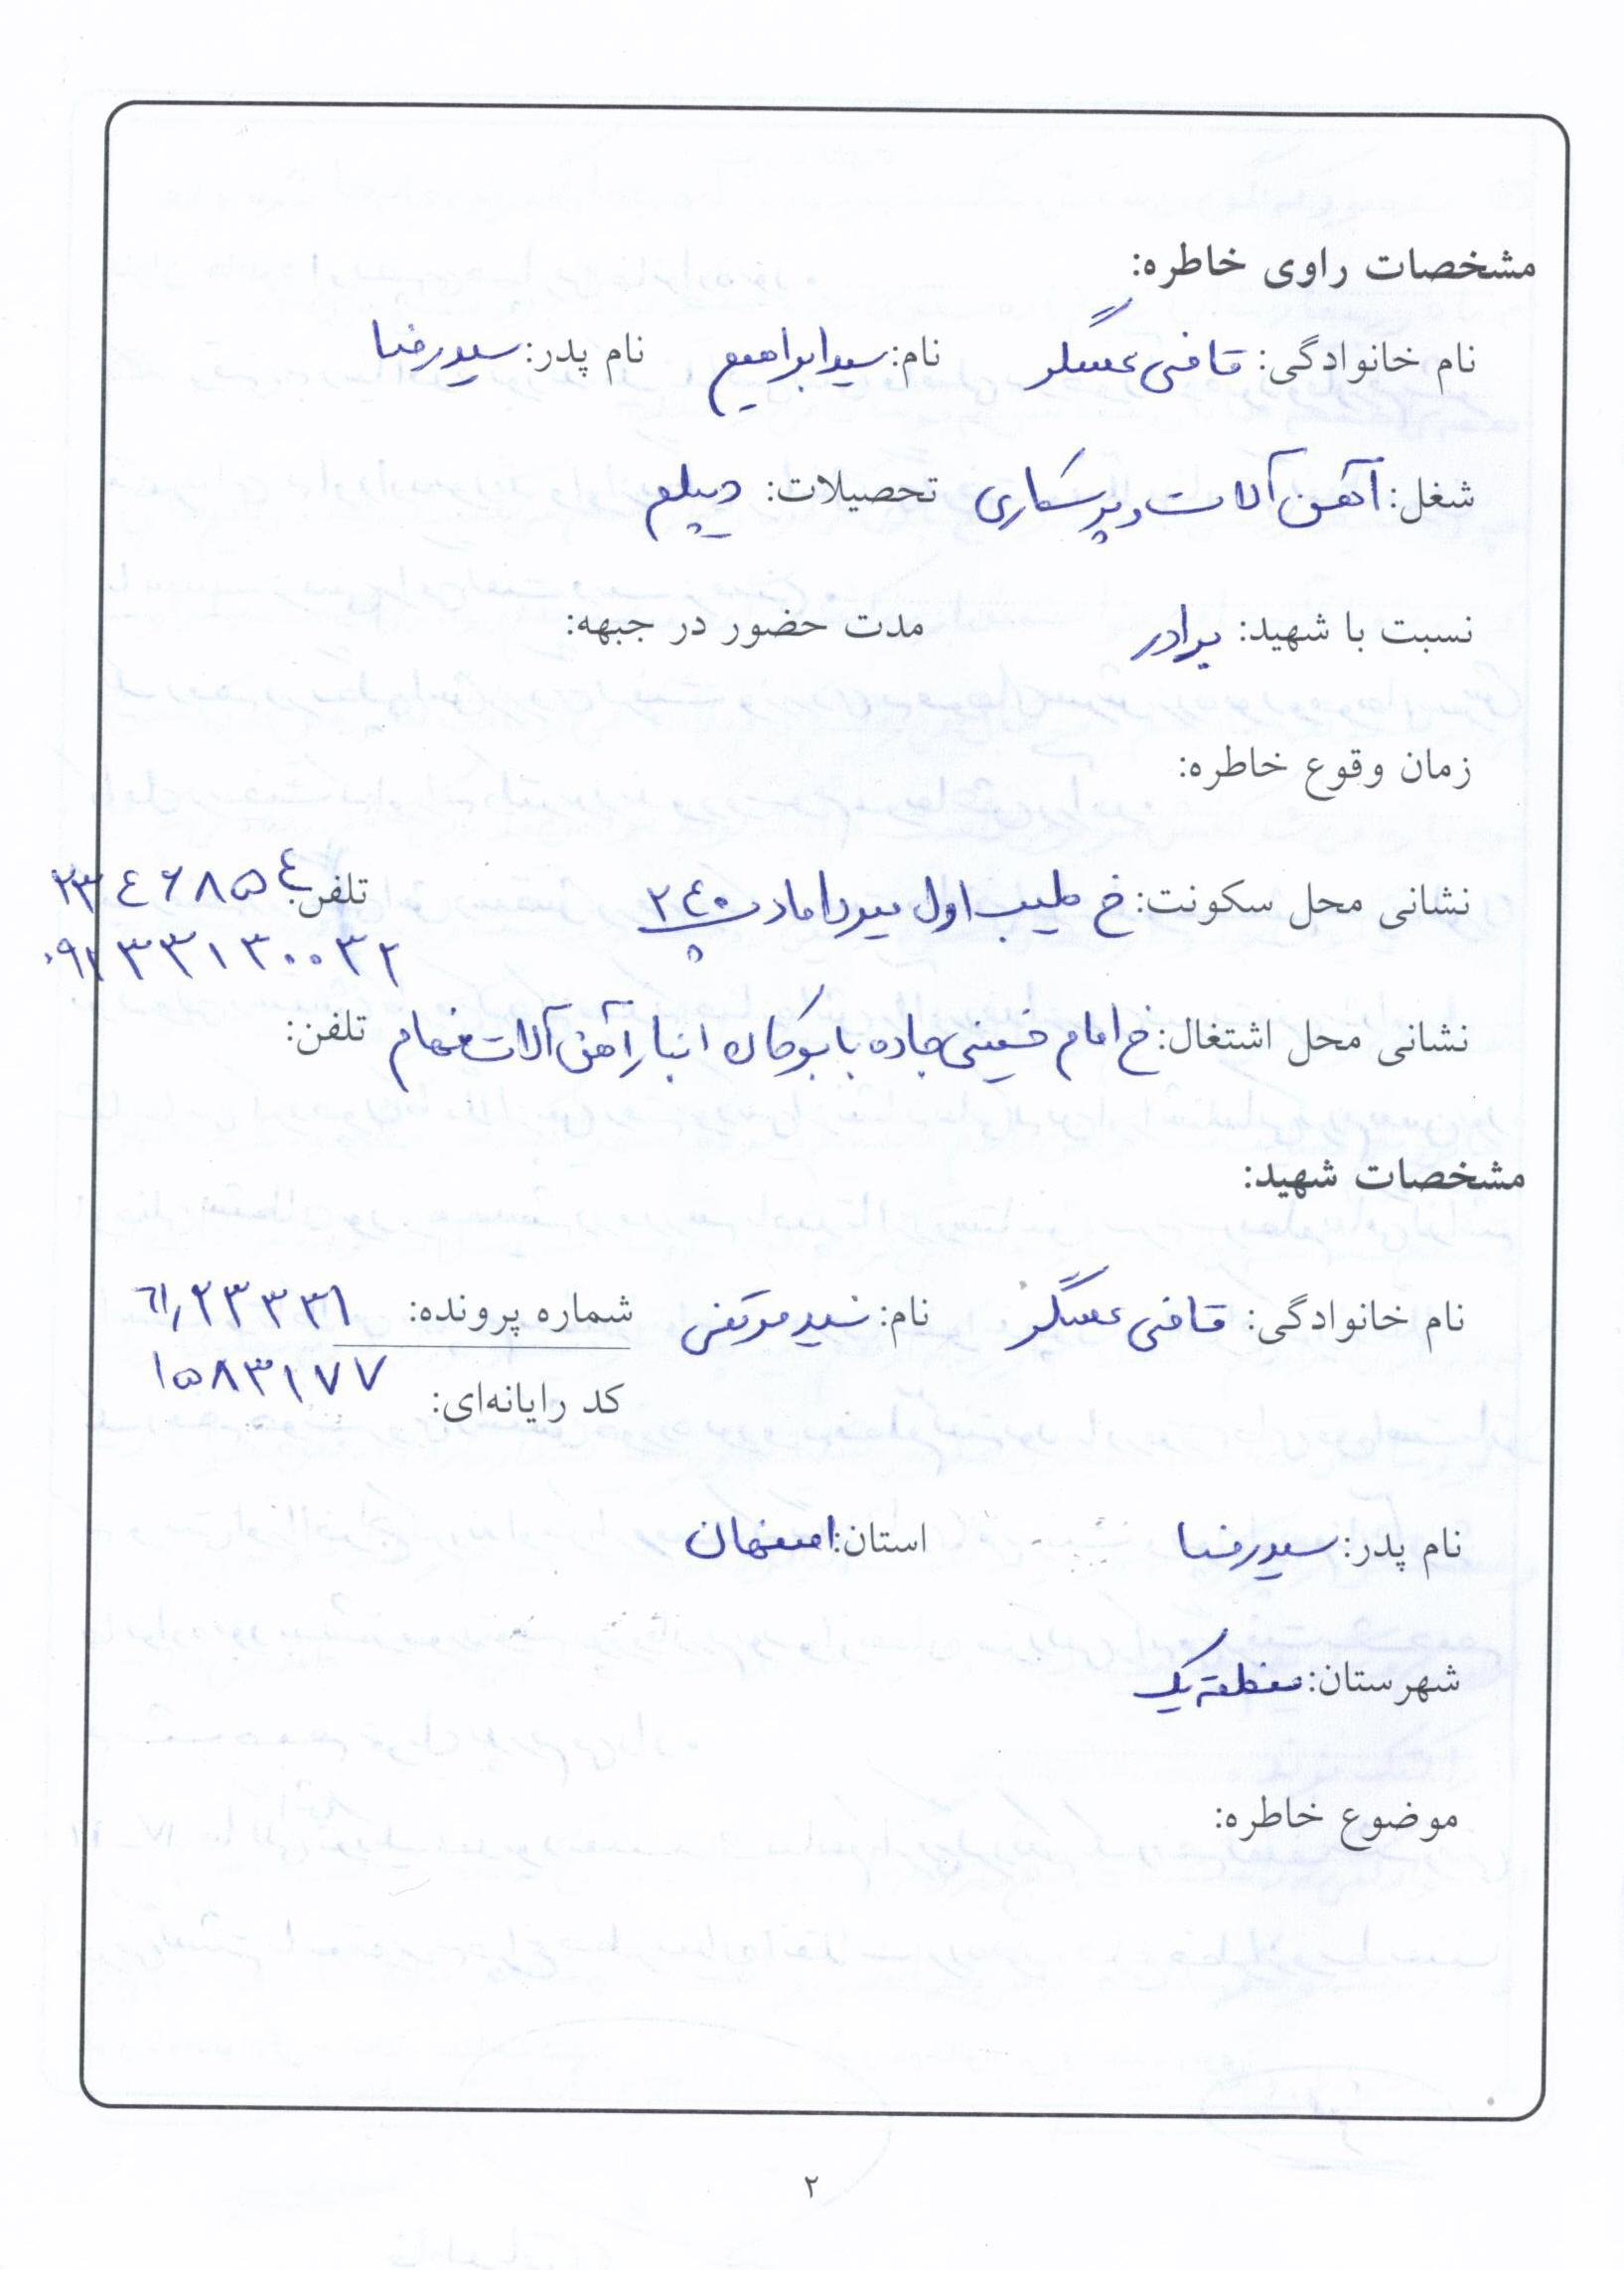 مشخصات راوی خاطره:
نام خانوادگی: قاضی عسگر نام: سید ابراهیم نام پدر: سید رضا
شغل: آهن آلات و پرسکاری تحصیلات: دیپلم
نسبت با شهید: برادر مدت حضور در جبهه:
زمان وقوع خاطره:
نشانی محل سکونت: خ طیب اول میرداماد پ ۲۴۰ تلفن: ۲۳۴۶۸۵۴
۰۹۱۳۳۱۳۰۰۳۲
نشانی محل اشتغال: خ امام خمینی جاده بابوکان انبار آهن آلات تلفن:
مشخصات شهید:
نام خانوادگی: قاضی عسگر نام: سید مرتضی شماره پرونده: ۶۱٫۲۳۳۳۱
کد رایانه‌ای: ۱۵۸۳۱۷۷
نام پدر: سید رضا استان: اصفهان
شهرستان: منطقه یک
موضوع خاطره:
۲